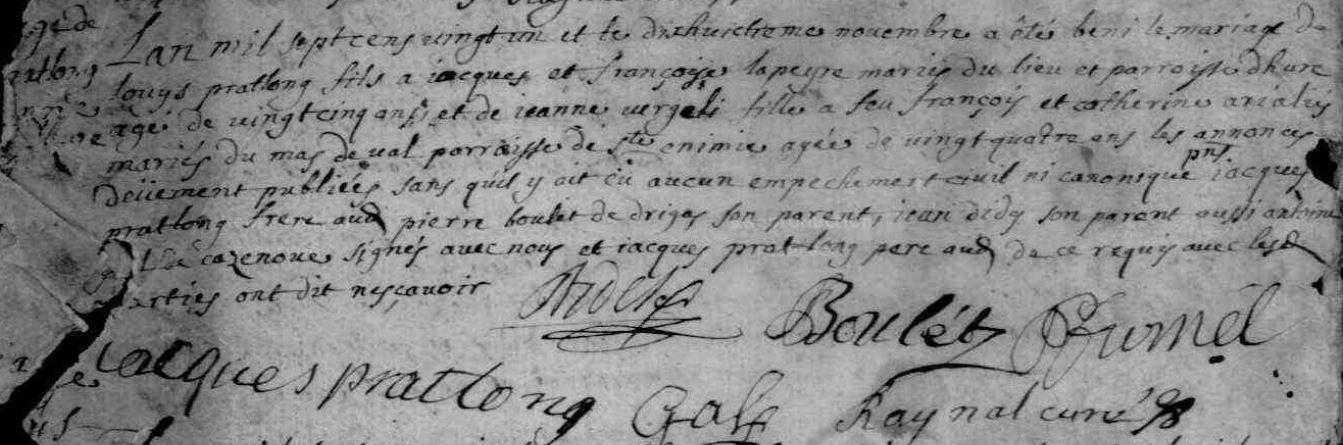 Lan mil sept cens vingt un et le dixhuictieme novembre a été beni le mariage de
louys pratlong fils a iacques et françoise lapeyre mariés du lieu et parroisse dhure
agé de vingt cinq ans et de ieanne vergeli fille a feu françois et catherine
mariés du mas de val parroisse de ste enimie agée de vingt quatre ans les annonces
deüement publiées sans qu'il y ait eü aucun empechement civil ni canonique pnts iacques
pratlong frere aud pierre boulet de drigas son parent, iean didy son parent aussi antoine
cazenove signés avec nous et iacques pratlong pere aud de ce requis avec lesd
parties ont dit nesçavoir
Boulét
iacques pratlong Raynal curé